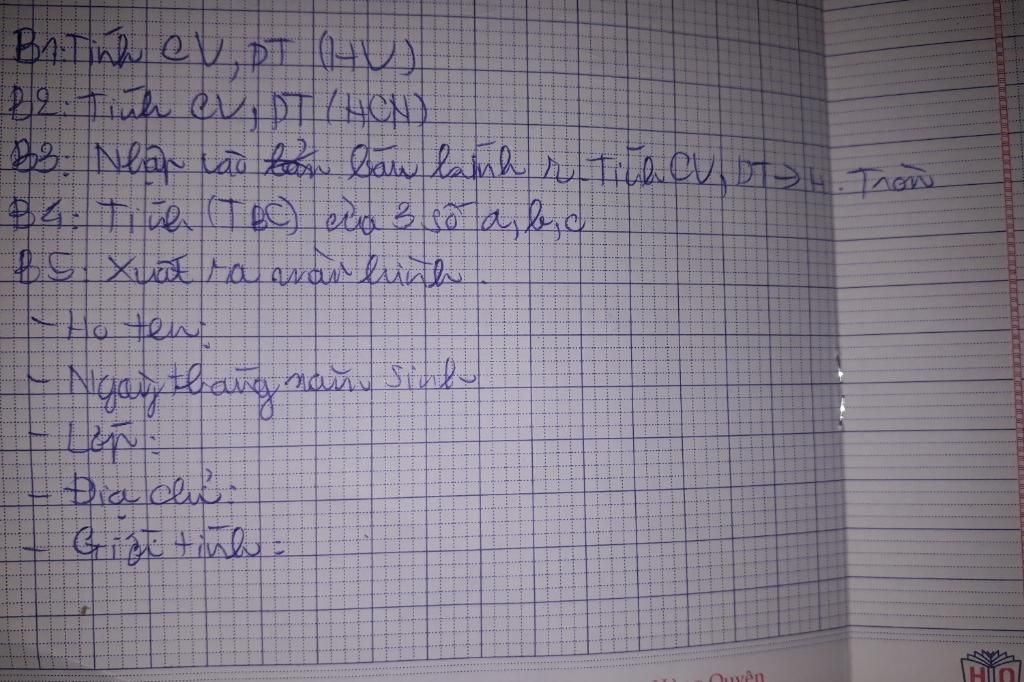 B1: Tính CV, DT (HV)
B2: Tính CV, DT (HCN)
B3: Nhập vào bán kính r. Tính CV, DT → H. Tròn
B4: Tính (TBC) của 3 số a, b, c
B5: Xuất ra màn hình.
- Họ tên:
- Ngày tháng năm sinh
- Lớp:
- Địa chỉ:
- Giới tính:
Quyên
HO